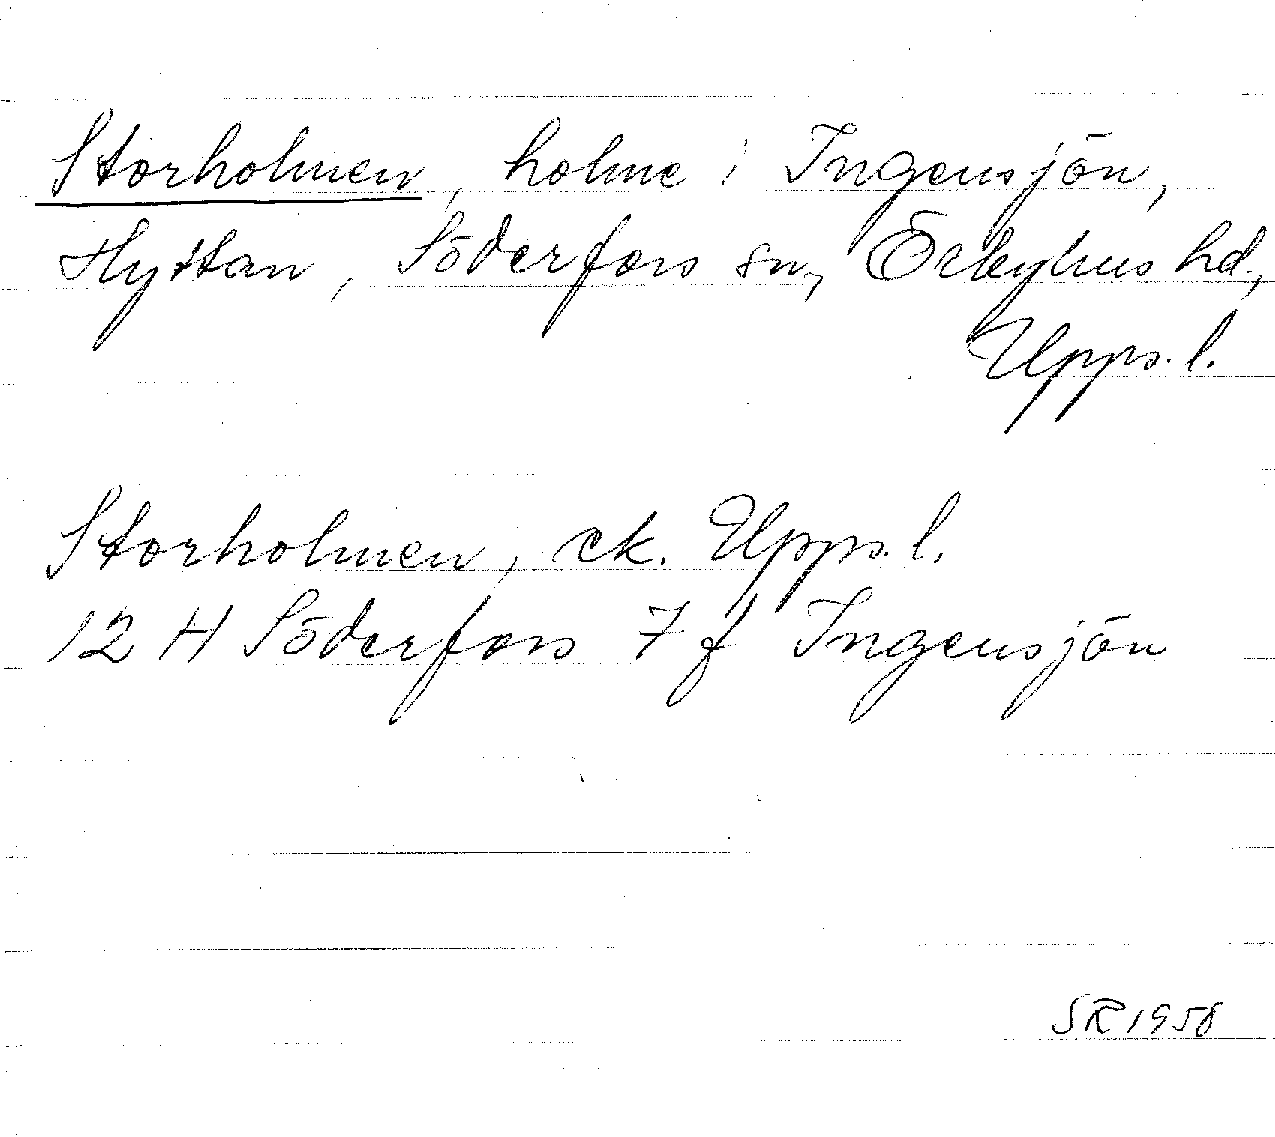 Storholmen, holme i Ingensjön,
Hyttan, Söderfors sn, Örbyhus hd,
Upps. l.
Storholmen, ek. Upps. l.
12 H Söderfors 7 f Ingensjön
SR 1958